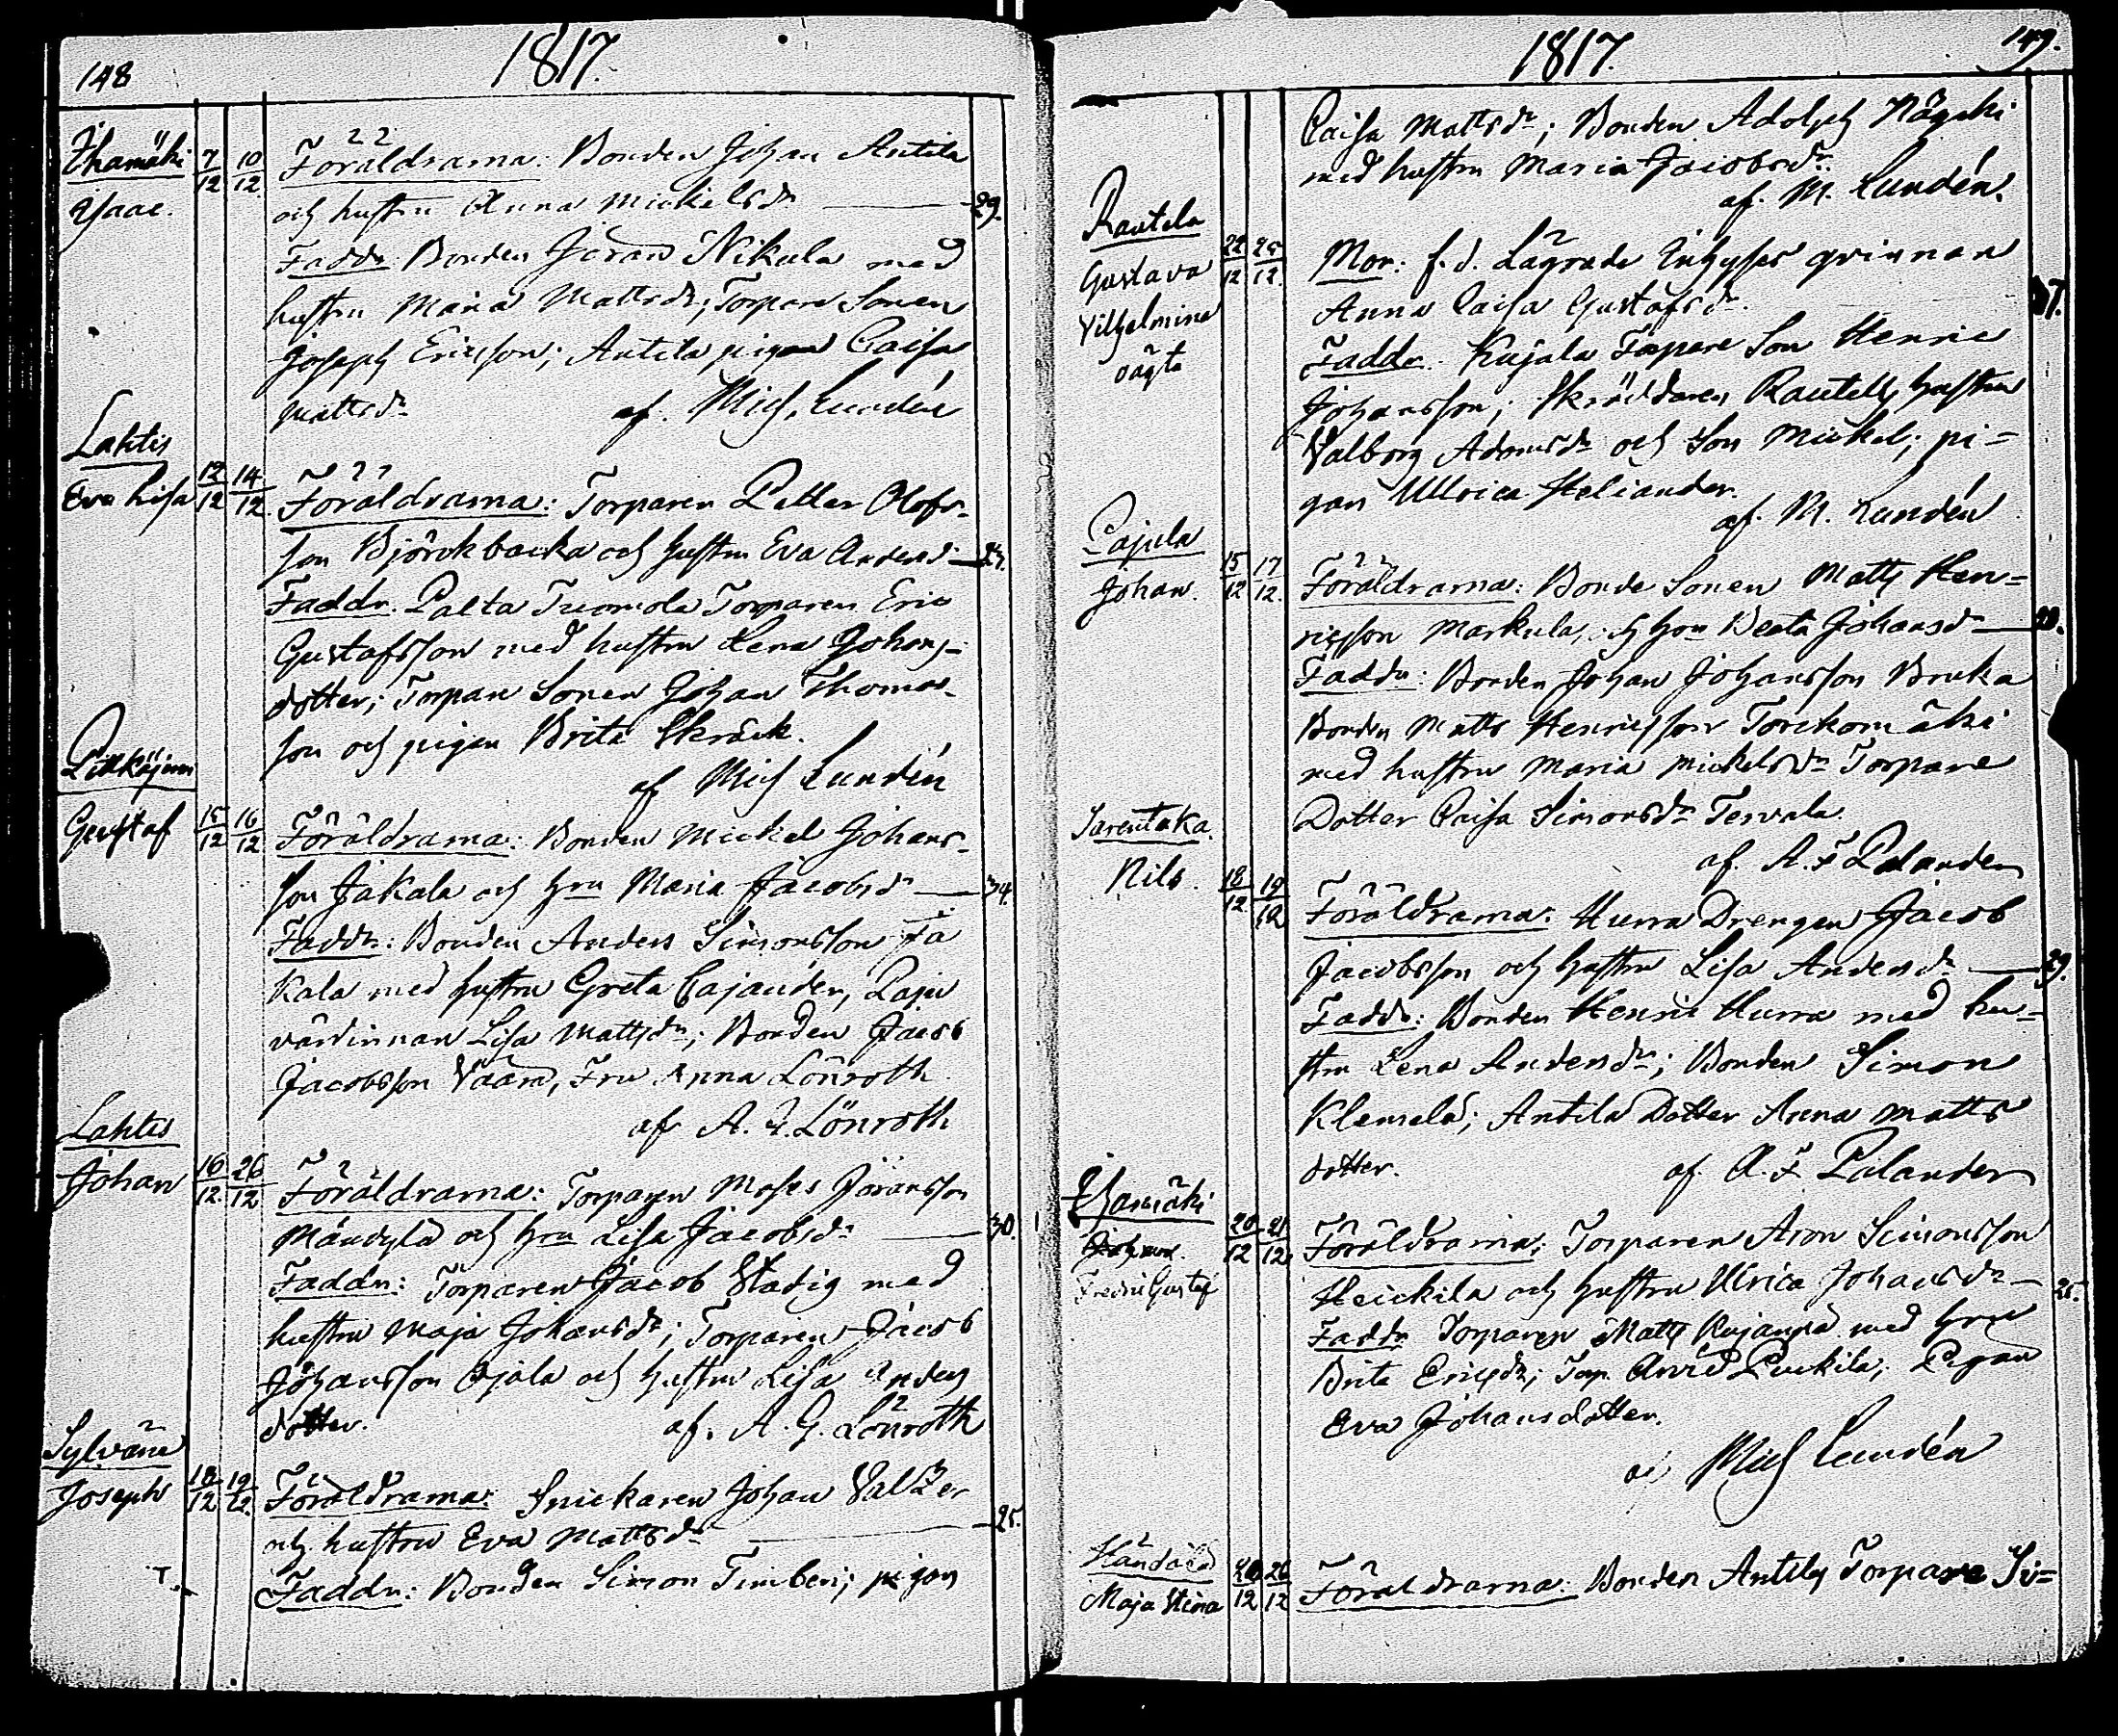 148
1817.
Ihamäki 7/12 10/12 Föräldrarna: Bonden Johan Antila
Isaac. och hustru Anna Mickelsdr 29.
Faddr: Bonden Jöran Nikula med
hustru Maria Mattsdr; Torpare Sonen
Joseph Ericsson; Antila pigan Caisa
Mattsdr af. Mich. Lundén
Lahtis
Eva Lisa 12/12 14/12. Föräldrarna: Torparen Petter Olofs-
son Björckbacka och hustru Eva Andersdr
Faddr. Palta Tuomola Torparen Eric
Gustafsson med hustru Lena Johans-
dotter; Torpare Sonen Johan Thomas-
son och pigan Brita Skräck.
af Mich Lundén
Pitkäjervi
Gustaf 15/12 16/12 Föräldrarna: Bonden Mickel Johans-
son Jakala och hru Maria Jacobsdr 34.
Faddr: Bonden Anders Simonsson Ja
kala med hustru Greta Cajander, Paju
värdinnan Lisa Mattsdr; Bonden Jacob
Jacobsson Vaara, Fru Anna Lönroth
af A. G. Lönroth
Lahtis
Johan 16/12. 26/12 Föräldrarna: Torparen Moses Göransson
Mändylä och hru Lisa Jacobsdr 30.
Faddr: Torparen Jacob Stadig med
hustru Maja Johansdr; Torparen Jacob
Johansson Ojala och hustru Lisa Anders
dotter. af. A. G. Lönroth
Sylvänä
Joseph 18/12 19/12. Föräldrarna: Snickaren Johan Valler
och hustru Eva Mattsdr 25.
Faddr: Bonden Simon Timberi; pigan
1817. 149.
Caisa Mattsdr; Bonden Adolph
med hustru Maria Jacobsdr.
af. M. Lundén.
Rautela
Gustava 22/12 25/12. Mor: f.d. Lägrade Inhyses qvinnan
Vilhelmina Anna Caisa Gustafsdr. 37.
oägta Faddr. Kujala Torpare Son Henric
Johansson; Skräddaren Rautells hustru
Valborg Adamsdr och Son Mickel; pi=
gan Ullrica Heliander.
af. M. Lundén
Pajula
Johan. 15/12 17/12. Föräldrarna: Bonde Sonen Matts Hen=
ricsson Markula, och hru Beata Johansdr
Faddr: Bonden Johan Johansson Bruka
Bonden Matts Henricsson Torckomäki
med hustru Maria Mickelsdr Torpare
Dotter Caisa Simonsdr Tervala.
af. A. F. Palander
Sarentaka.
Nils. 18/12 19/12 Föräldrarna: Hurra Drengen Jacob
Jacobsson och hustru Lisa Andersdr 29.
Faddr: Bonden Henric Hurra med hu=
stru Lena Andersdr; Bonden Simon
Klemelä; Antila Dotter Anna Matts
dotter. af. A. F. Palander
Ihamäki
Johan. 20/12 21/12. Föräldrarna: Torparen Aron Simonsson
Fredric Gustaf Heickila och hustru Ulrica Johansdr 25.
Faddr Torparen Matts Kujanpä med hru
Brita Ericsdr; Torp. Arvid Puckila; Pigan
Eva Johansdotter.
af Mich Lundén
Maja Stina 20/12 26/12 Föräldrarna: Bonden Antilas Torpare Si=